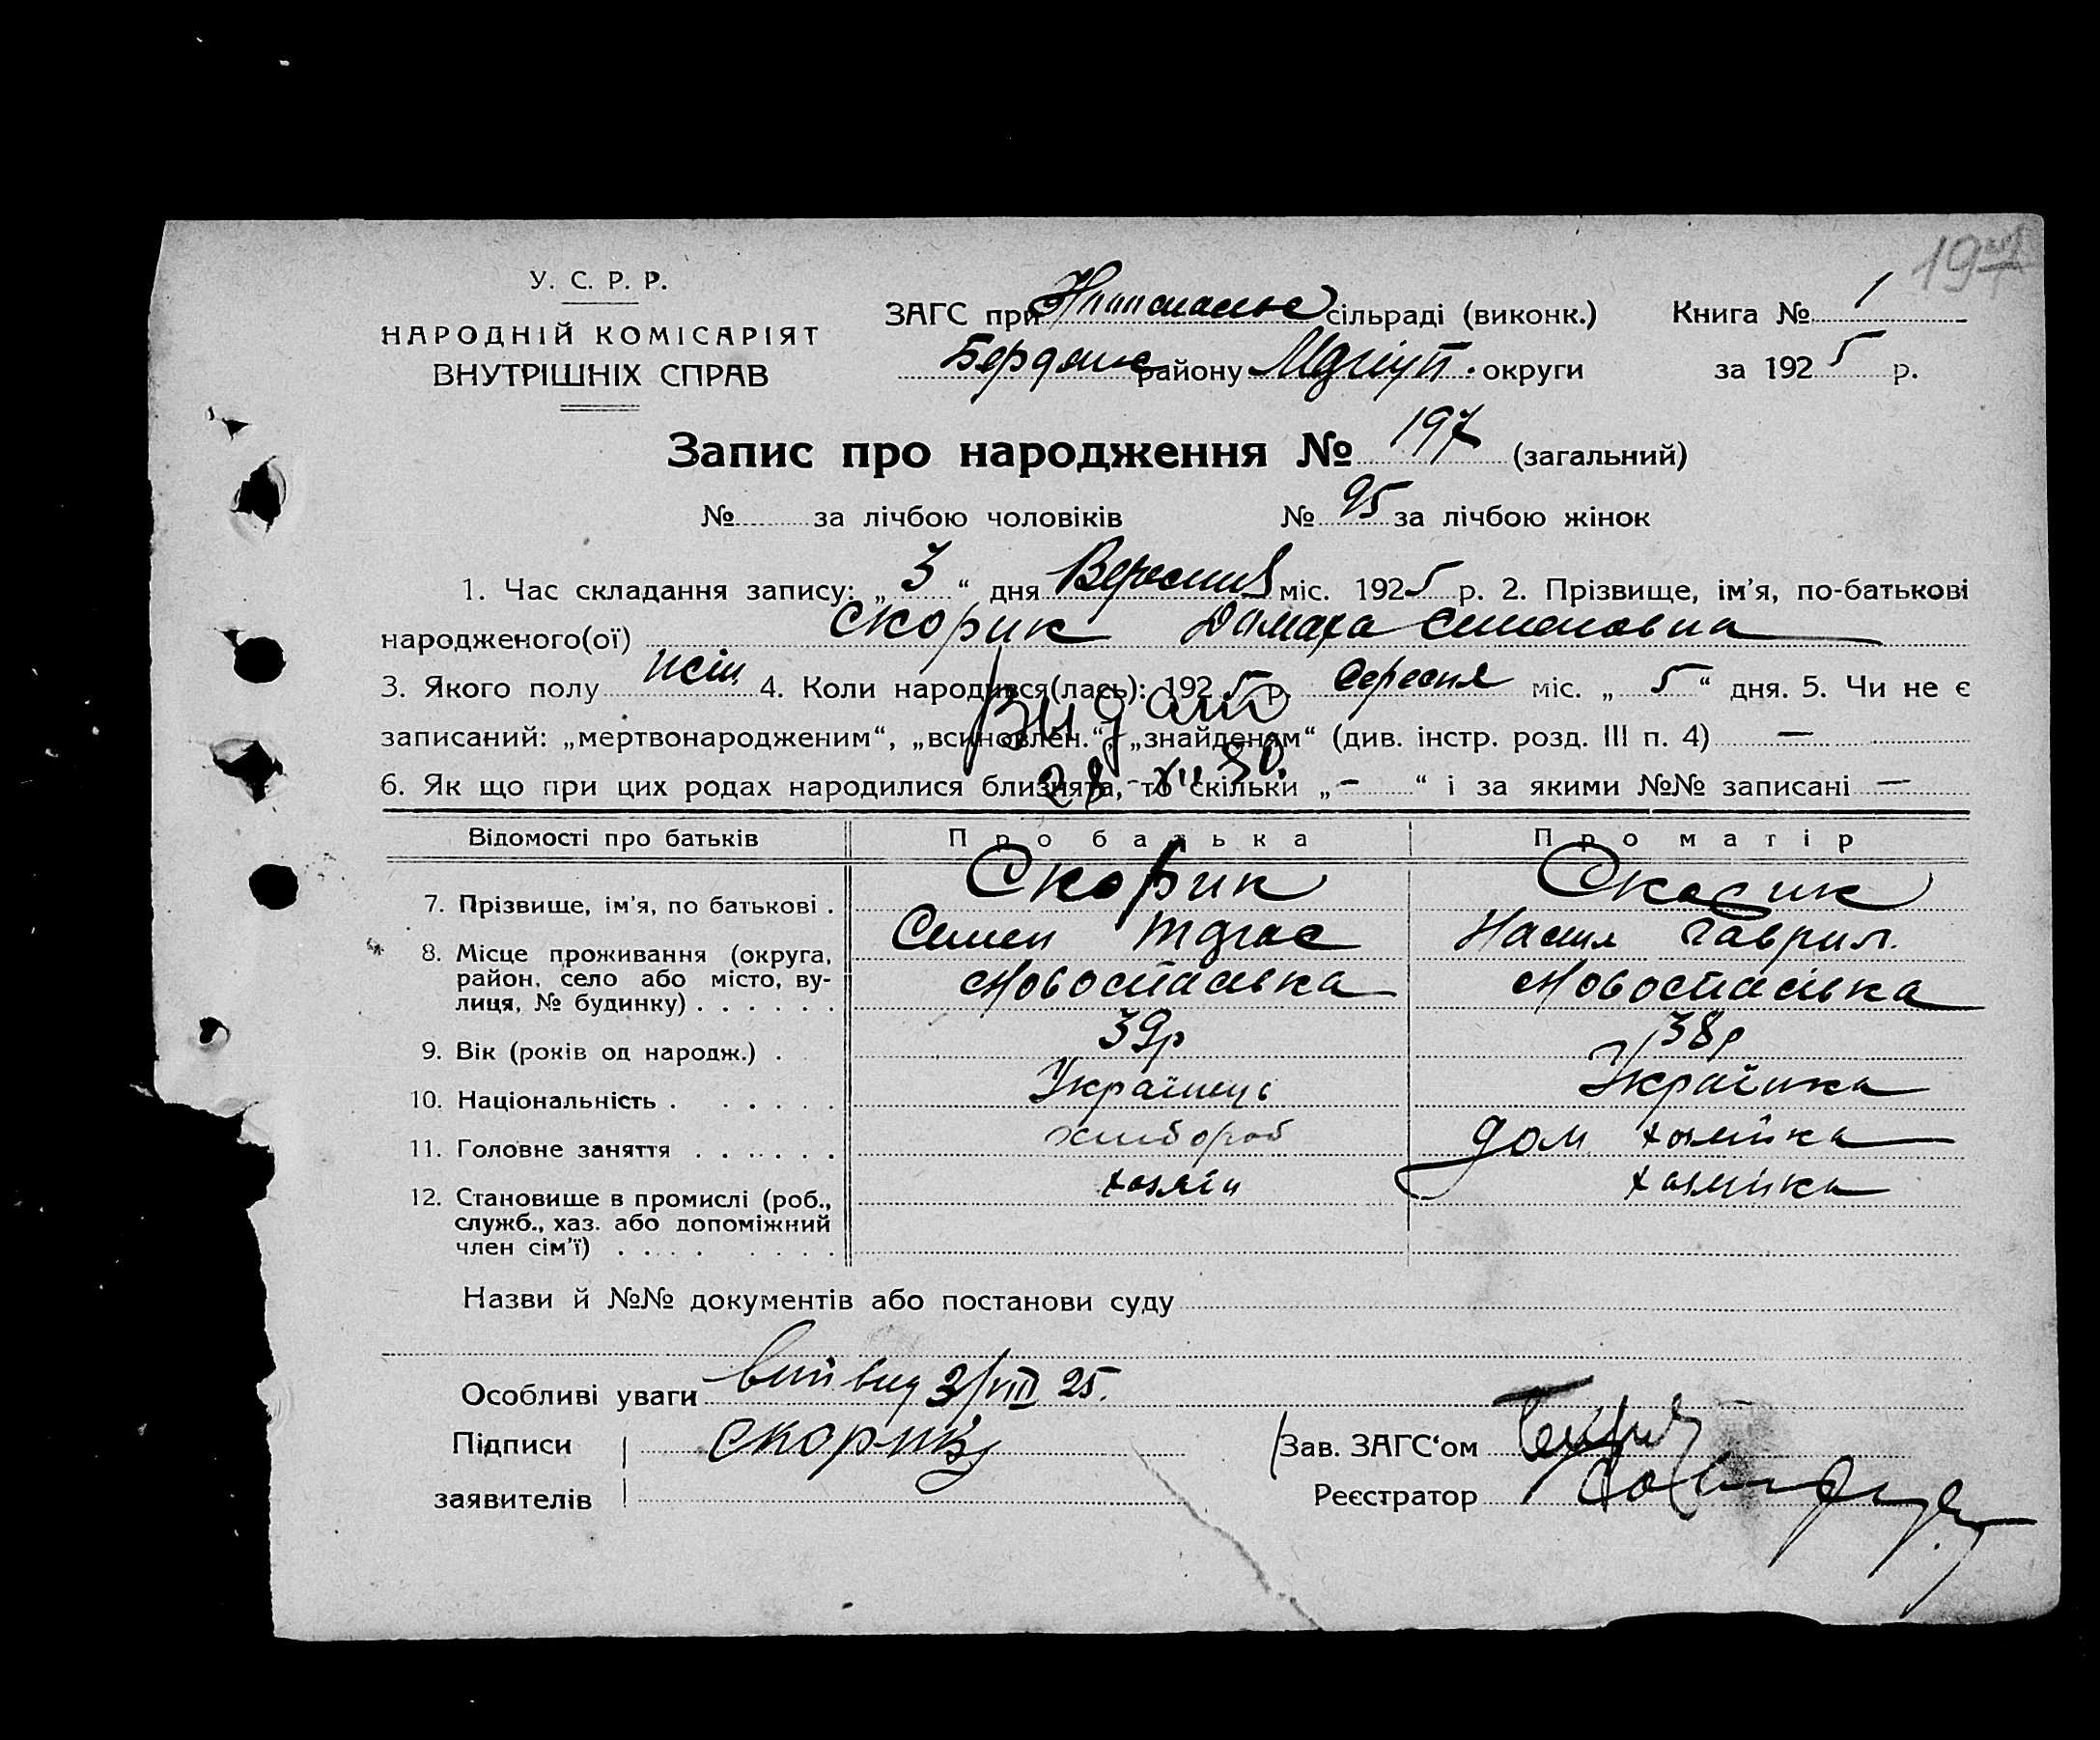 197
У. С. Р. Р.
НАРОДНІЙ КОМІСАРІЯТ
ВНУТРІШНІХ СПРАВ
ЗАГС при сільраді (виконк.) Книга № 1
Бердянс району округи за 1925 р.
Запис про народження № 197 (загальний)
№ за лічбою чоловіків № 95 за лічбою жінок
1. Час складання запису: „ 3 “ дня Вересня міс. 1925 р. 2. Прізвище, ім'я, по-батькові
народженого(ої) Скорик Домаха Семеновна
3. Якого полу жін 4. Коли народився(лась): 1925 р. Вересня міс. „ 5 “ дня. 5. Чи не є
записаний: „мертвонародженим“, „всиновлен.“, „знайденям“ (див. інстр. розд. III п. 4) —
6. Як що при цих родах народилися близнята, то скільки „ - “ і за якими №№ записані —
Видано
Відомості про батьків Про батька Про матір
7. Прізвище, ім'я, по батькові . Скорик Скорик
Семен Настя Гаврил.
8. Місце проживання (округа,
район, село або місто, ву-
лиця, № будинку) . . . . . . Новоспасівка Новоспасівка
9. Вік (років од народж.) . 39р 38р
10. Національність . . . . . . Українець Українка
11. Головне заняття . . . . . . хлібороб дом хозяйка
12. Становище в промислі (роб.,
служб., хаз. або допоміжний
член сім'ї) . . . . . . . . хозяїн хозяйка
Назви й №№ документів або постанови суду
Особливі уваги 3/VIII 25.
Підписи Скорик
заявителів
Зав. ЗАГС'ом
Реєстратор